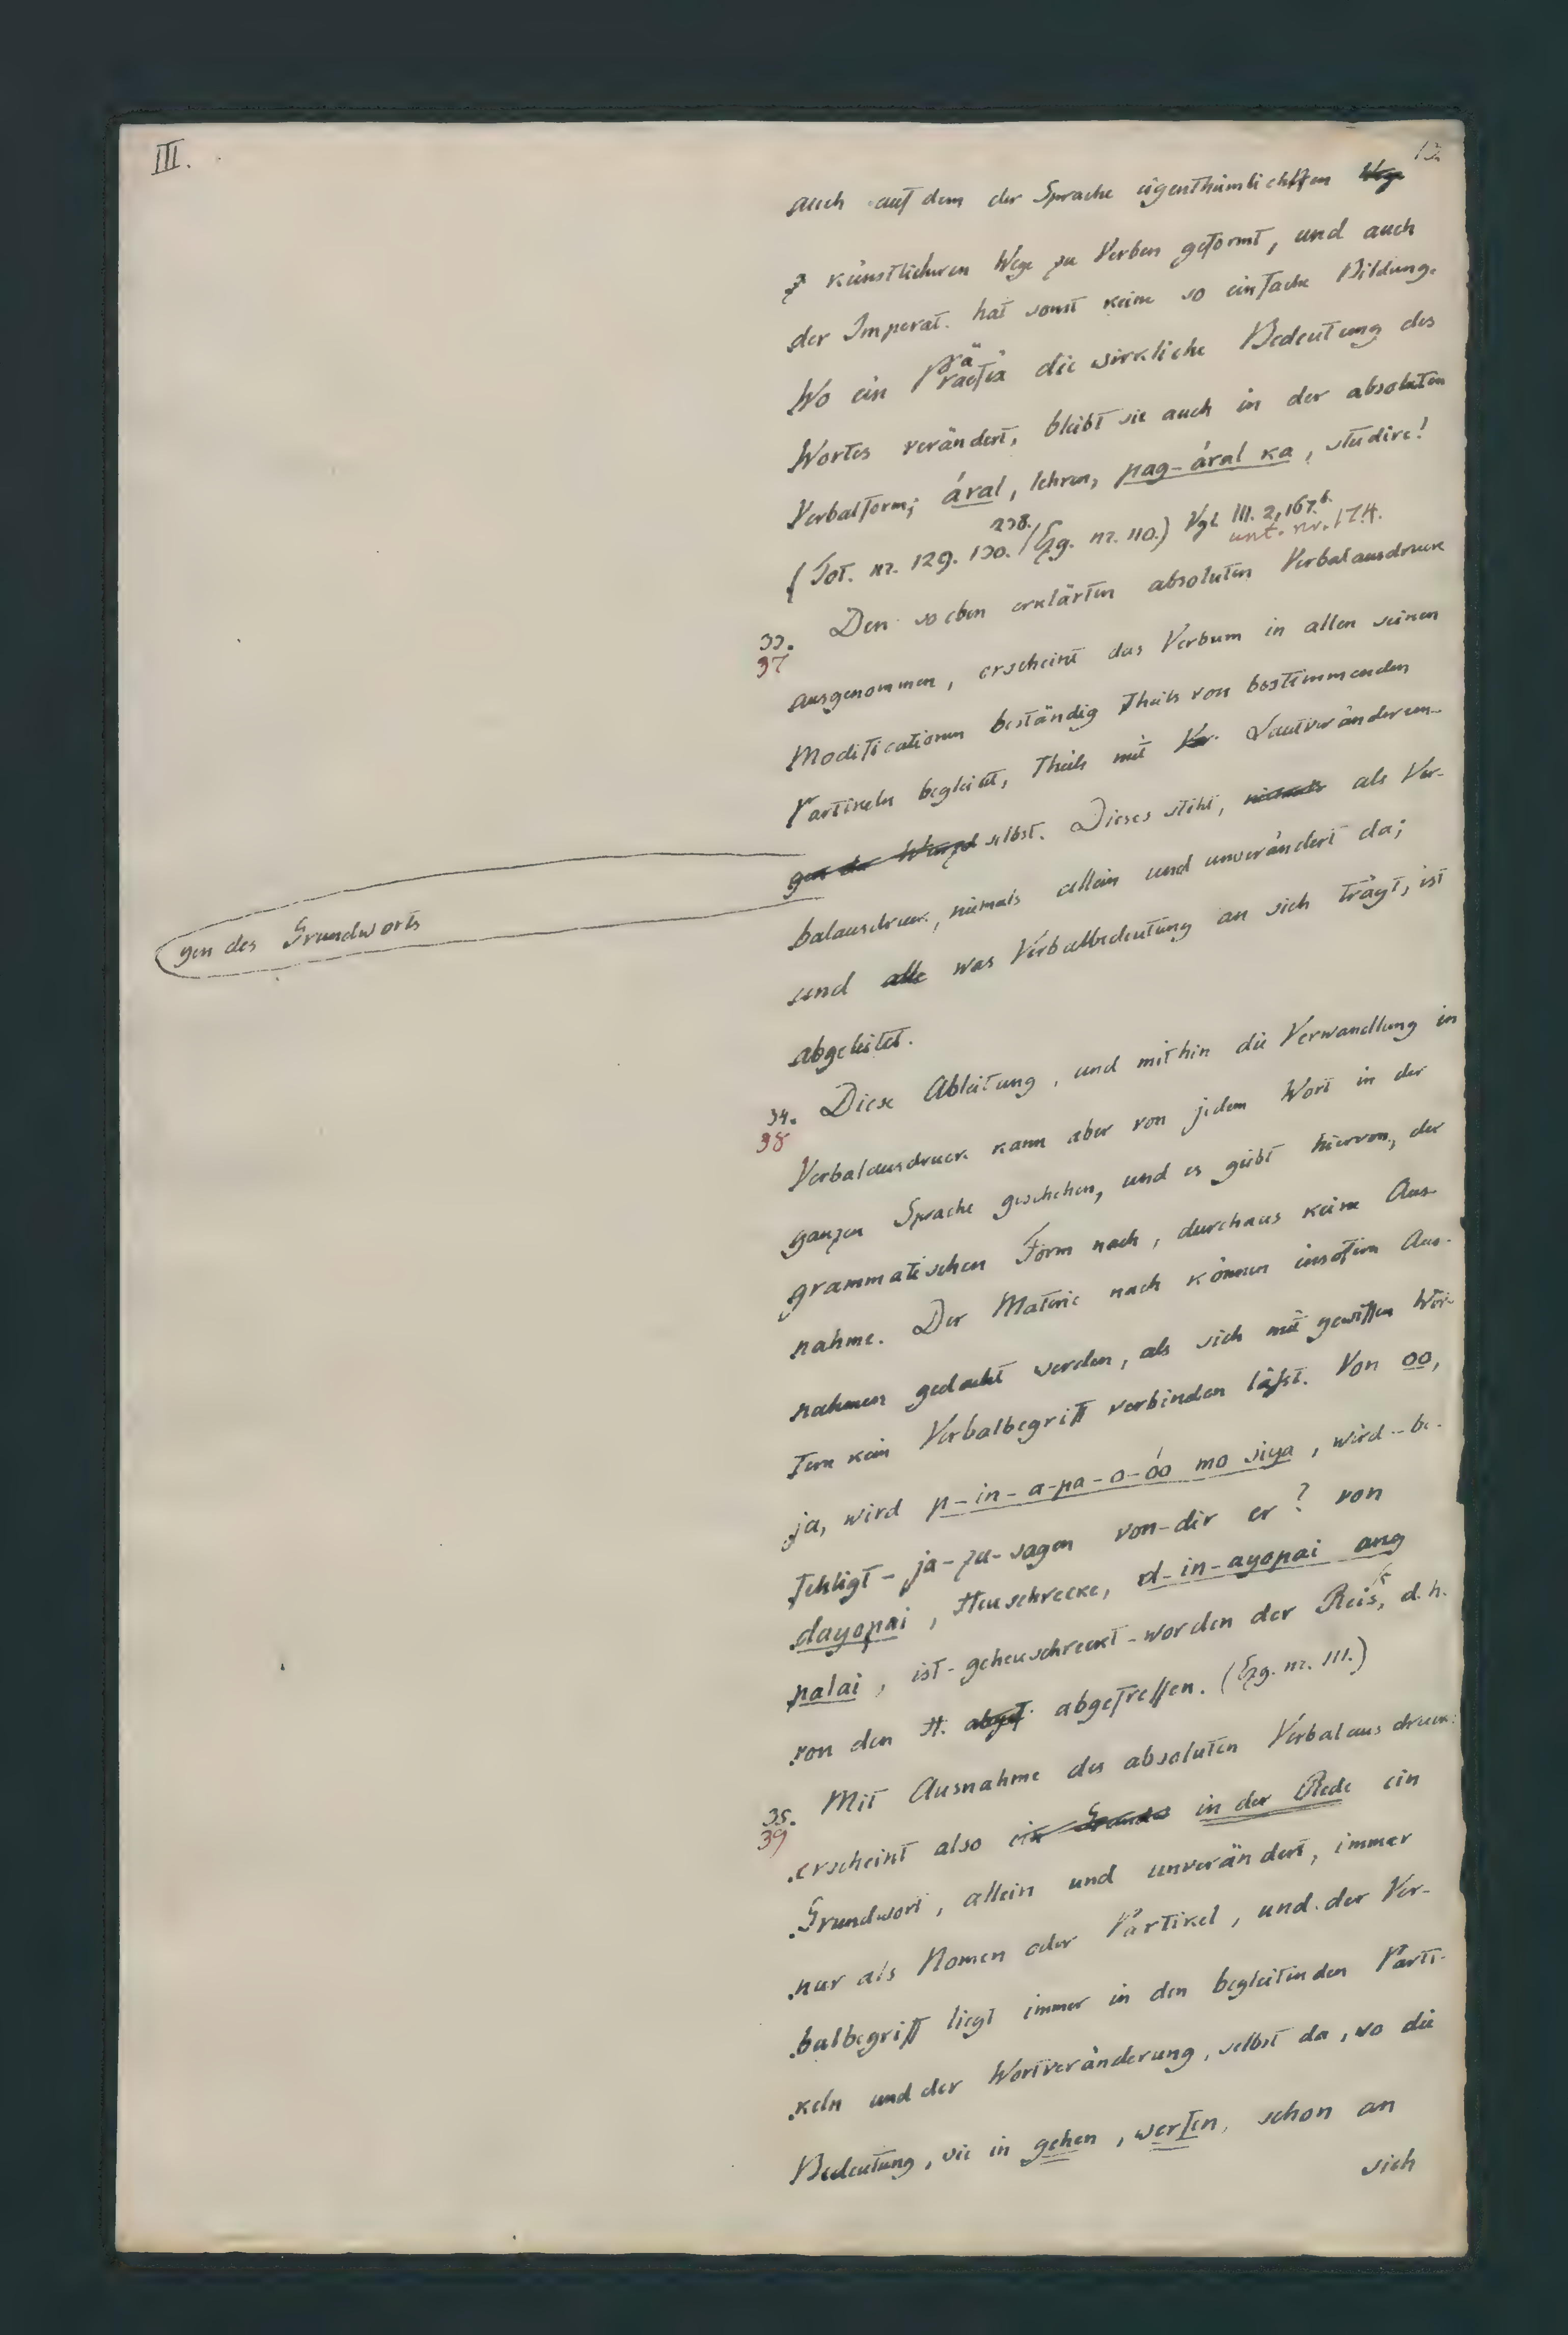 III.
13.
auch auf dem der Sprache eigenthümlichsten Wege
z künstlicheren Wege zu Verben geformt, und auch
der Imperat. hat sonst keine so einfache Bildung.
Wo ein Präfix die wirkliche Bedeutung des
Wortes verändert, bleibt sie auch in der absoluten
Verbalform; áral, lehren, pag-áral ka, studire!
(Tot. nr. 129. 130. 238. Ezg. nr. 110.) Vgl. III. 2, 167.b.
unt. nr. 174.
33. Den so eben erklärten absoluten Verbalausdruck
37
ausgenommen, erscheint das Verbum in allen seinen
Modificationen beständig theils von bestimmenden
Partikeln begleitet, theils mit Ver. Lautveränderun-
gen der Wurzel selbst. Dieses steht, niemals als Ver-
gen des Grundworts
balausdruck, niemals allein und unverändert da;
und alle was Verbalbedeutung an sich trägt, ist
abgeleitet.
34. Diese Ableitung, und mithin die Verwandlung in
38
Verbalausdruck kann aber von jedem Wort in der
ganzen Sprache geschehen, und es giebt hiervon, der
grammatischen Form nach, durchaus keine Aus-
nahme. Der Materie nach können insofern Aus-
nahmen gedacht werden, als sich mit gewissen Wör-
tern kein Verbalbegriff verbinden läfst. Von oo,
ja, wird p-in-a-pa-o-óo mo siya, wird-be-
fehligt-ja-zu-sagen von-dir er? von
dayopai, Heuschrecke, d-in-ayopai ang
palai, ist-geheuschreckt-worden der Reis, d.h.
von den H. abgef. abgefressen. (Ezg. nr. 111.)
35. Mit Ausnahme des absoluten Verbalausdrucks
39
erscheint also ein Grundwo in der Rede ein
Grundwort, allein und unverändert, immer
nur als Nomen oder Partikel, und der Ver-
balbegriff liegt immer in den begleitenden Parti-
keln und der Wortveränderung, selbst da, wo die
Bedeutung, wie in gehen, werfen, schon an
sich